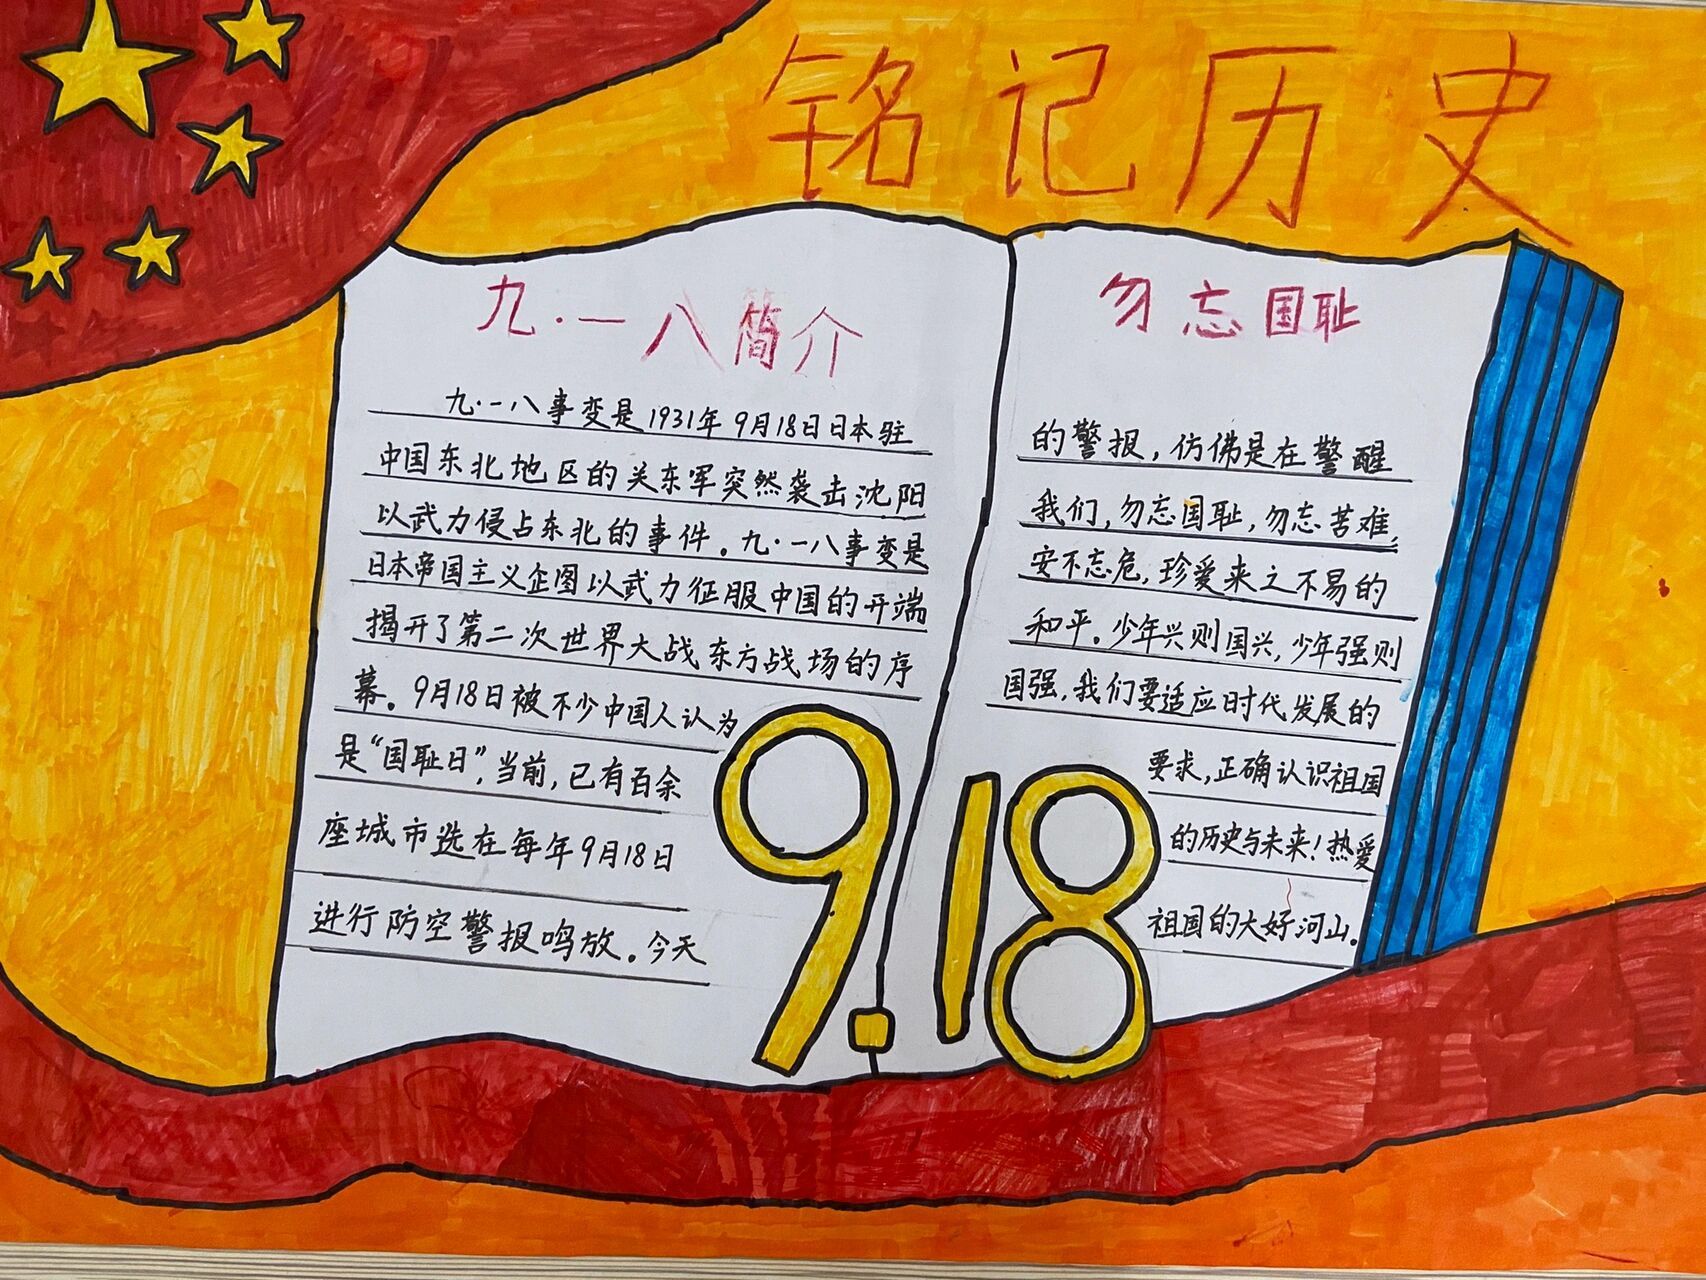 铭记历史
九·一八简介
九·一八事变是1931年9月18日日本驻
中国东北地区的关东军突然袭击沈阳
以武力侵占东北的事件。九·一八事变是
日本帝国主义企图以武力征服中国的开端
揭开了第二次世界大战东方战场的序
幕。9月18日被不少中国人认为
是“国耻日”,当前,已有百余
座城市选在每年9月18日
进行防空警报鸣放。今天
勿忘国耻
的警报,仿佛是在警醒
我们,勿忘国耻,勿忘苦难,
安不忘危,珍爱来之不易的
和平。少年兴则国兴,少年强则
国强,我们要适应时代发展的
要求,正确认识祖国
的历史与未来!热爱
祖国的大好河山。
9.18